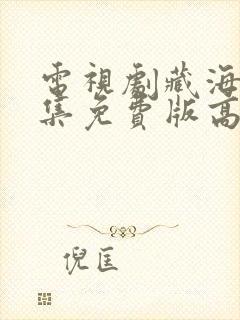 電視劇藏海
集免費版高
倪匡